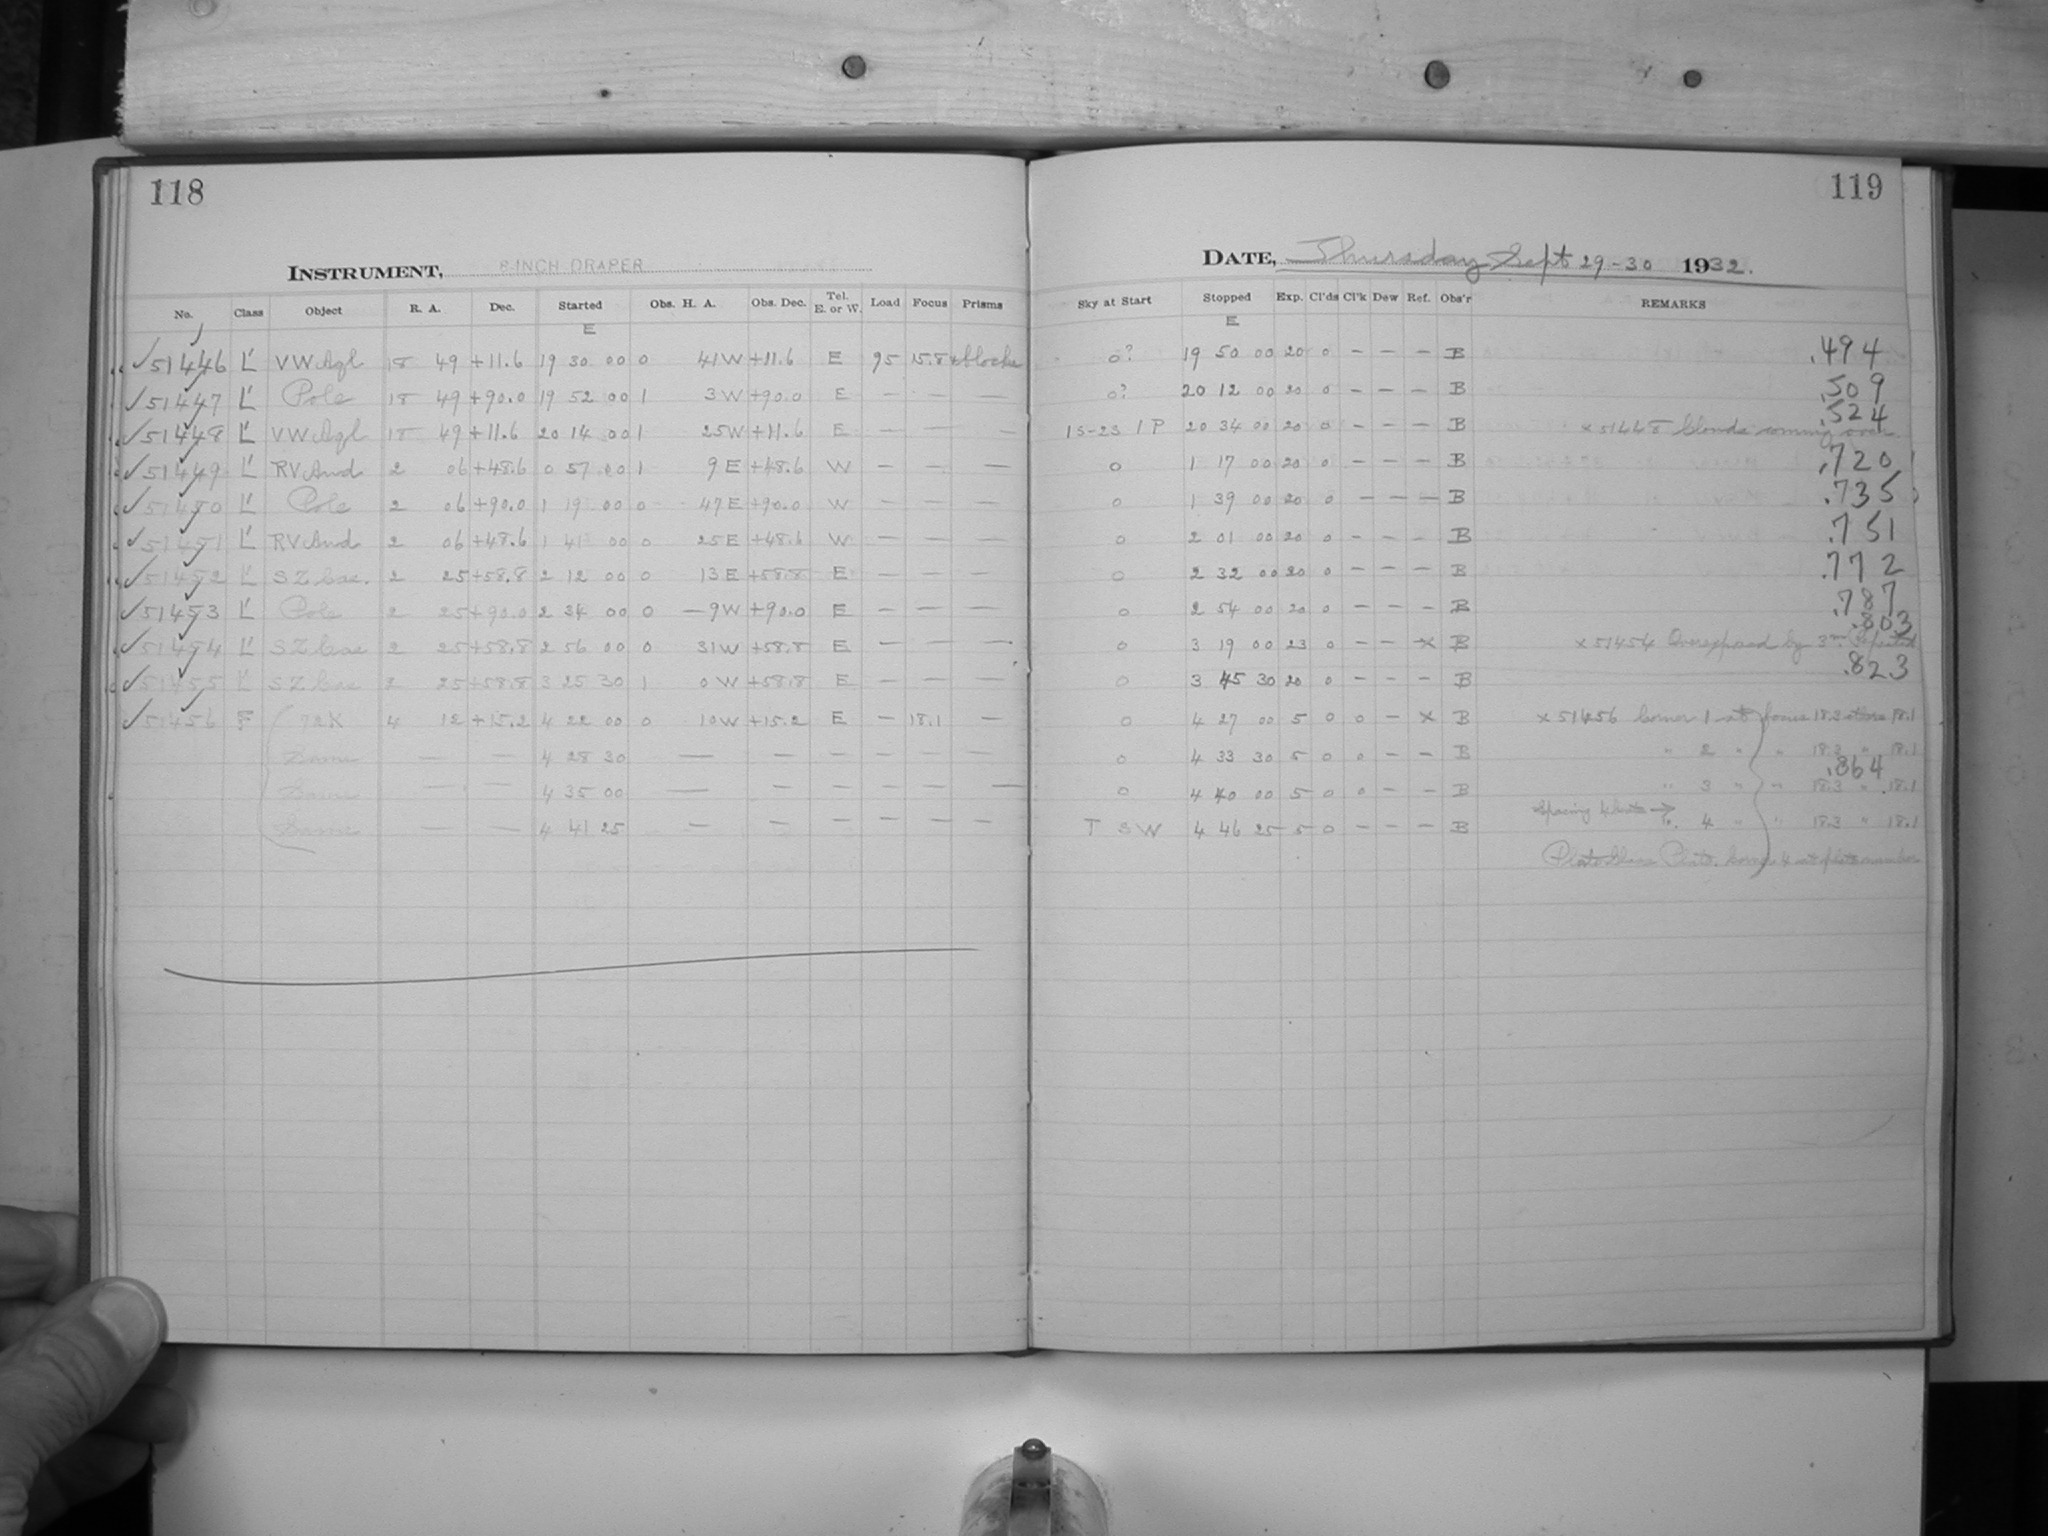 118
INSTRUMENT, 8-INCH DRAPER
No. Class Object R. A. Dec. Started Obs. H. A. Obs. Dec. Tel. E. or W. Load Focus Prisms
E
51446 L' VW Aql 18 49 +11.6 19 30 00 0 41 W +11.6 E 95 15.8
51447 L' Pole 18 49 +90.0 19 52 00 1 3 W +90.0 E — — —
51448 L' VW Aql 18 49 +11.6 20 14 00 1 25 W +11.6 E — — —
51449 L' RV And 2 06 +48.6 0 57 00 1 9 E +48.6 W — — —
51450 L' Pole 2 06 +90.0 1 19 00 0 47 E +90.0 W — — —
51451 L' RV And 2 06 +48.6 1 41 00 0 25 E +48.6 W — — —
51452 L' SZ Cas. 2 25 +58.8 2 12 00 0 13 E +58.8 E — — —
51453 L' Pole 2 25 +90.0 2 34 00 0 — 9 W +90.0 E — — —
51454 L' SZ Cas 2 25 +58.8 2 56 00 0 31 W +58.8 E — — —
51455 L' SZ Cas 2 25 +58.8 3 25 30 1 0 W +58.8 E — — —
51456 F 72K 4 12 +15.2 4 22 00 0 10 W +15.2 E — 18.1 —
Same — — 4 28 30 — — — — — —
Same — — 4 35 00 — — — — — —
Same — — 4 41 25 — — — — — —
119
DATE, Thursday Sept 29-30 1932.
Sky at Start Stopped Exp. Cl'ds Cl'k Dew Ref. Obs'r REMARKS
E
0? 19 50 00 20 0 — — — B .494
0? 20 12 00 20 0 — — — B .509
13-23 1 P 20 34 00 20 0 — — — B x 51448 Clouds coming over. .524
0 1 17 00 20 0 — — — B .720
0 1 39 00 20 0 — — — B .735
0 2 01 00 20 0 — — — B .751
0 2 32 00 20 0 — — — B .772
0 2 54 00 20 0 — — — B .787
0 3 19 00 23 0 — — x B x 51454 Overexposed by 3m. Repeated .803
0 3 45 30 20 0 — — — B .823
0 4 27 00 5 0 0 — x B x 51456 Corner 1 at focus 18.3 others 18.1
0 4 33 30 5 0 0 — — B " 2 " " 18.3 " 18.1
.864
0 4 40 00 5 0 0 — — B " 3 " " 18.3 " 18.1
T S W 4 46 25 5 0 — — — B Spacing → " 4 " " 18.3 " 18.1
Plate Glass Plate. Corner 4 at plate number